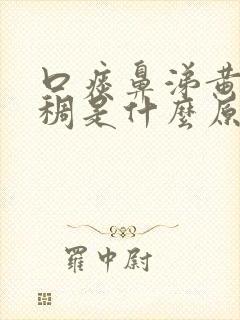 口痰鼻涕黄
稠是什麼原
羅中尉